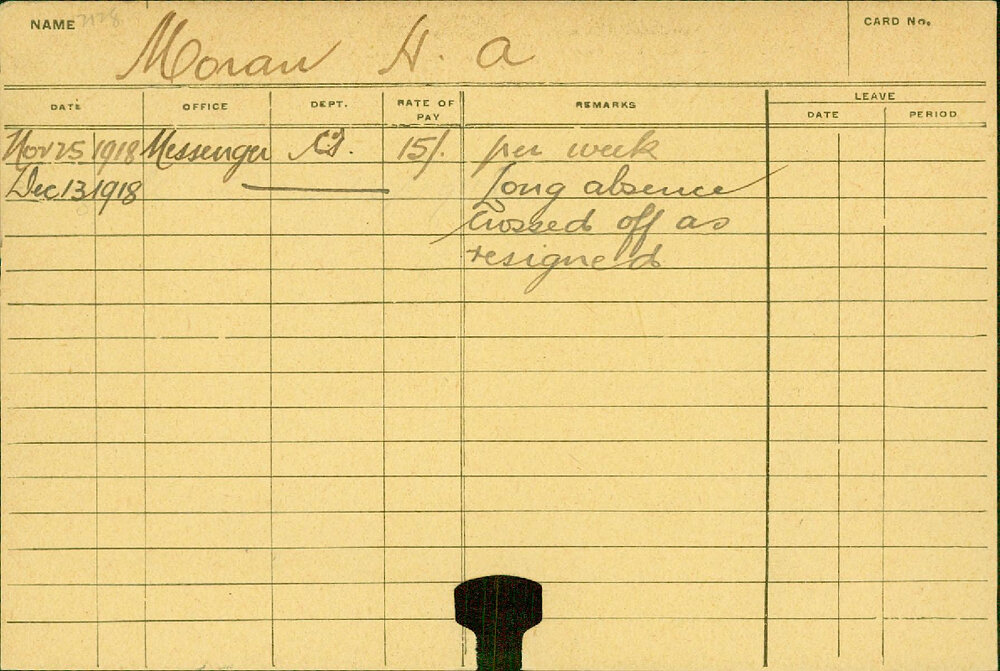 NAME
CARD No.
Moran H. A
DATE OFFICE DEPT. RATE OF PAY REMARKS LEAVE
DATE PERIOD
Nov 25 1918 Messenger 15/. per week
Dec 13 1918 Long absence
Crossed off as
resigned